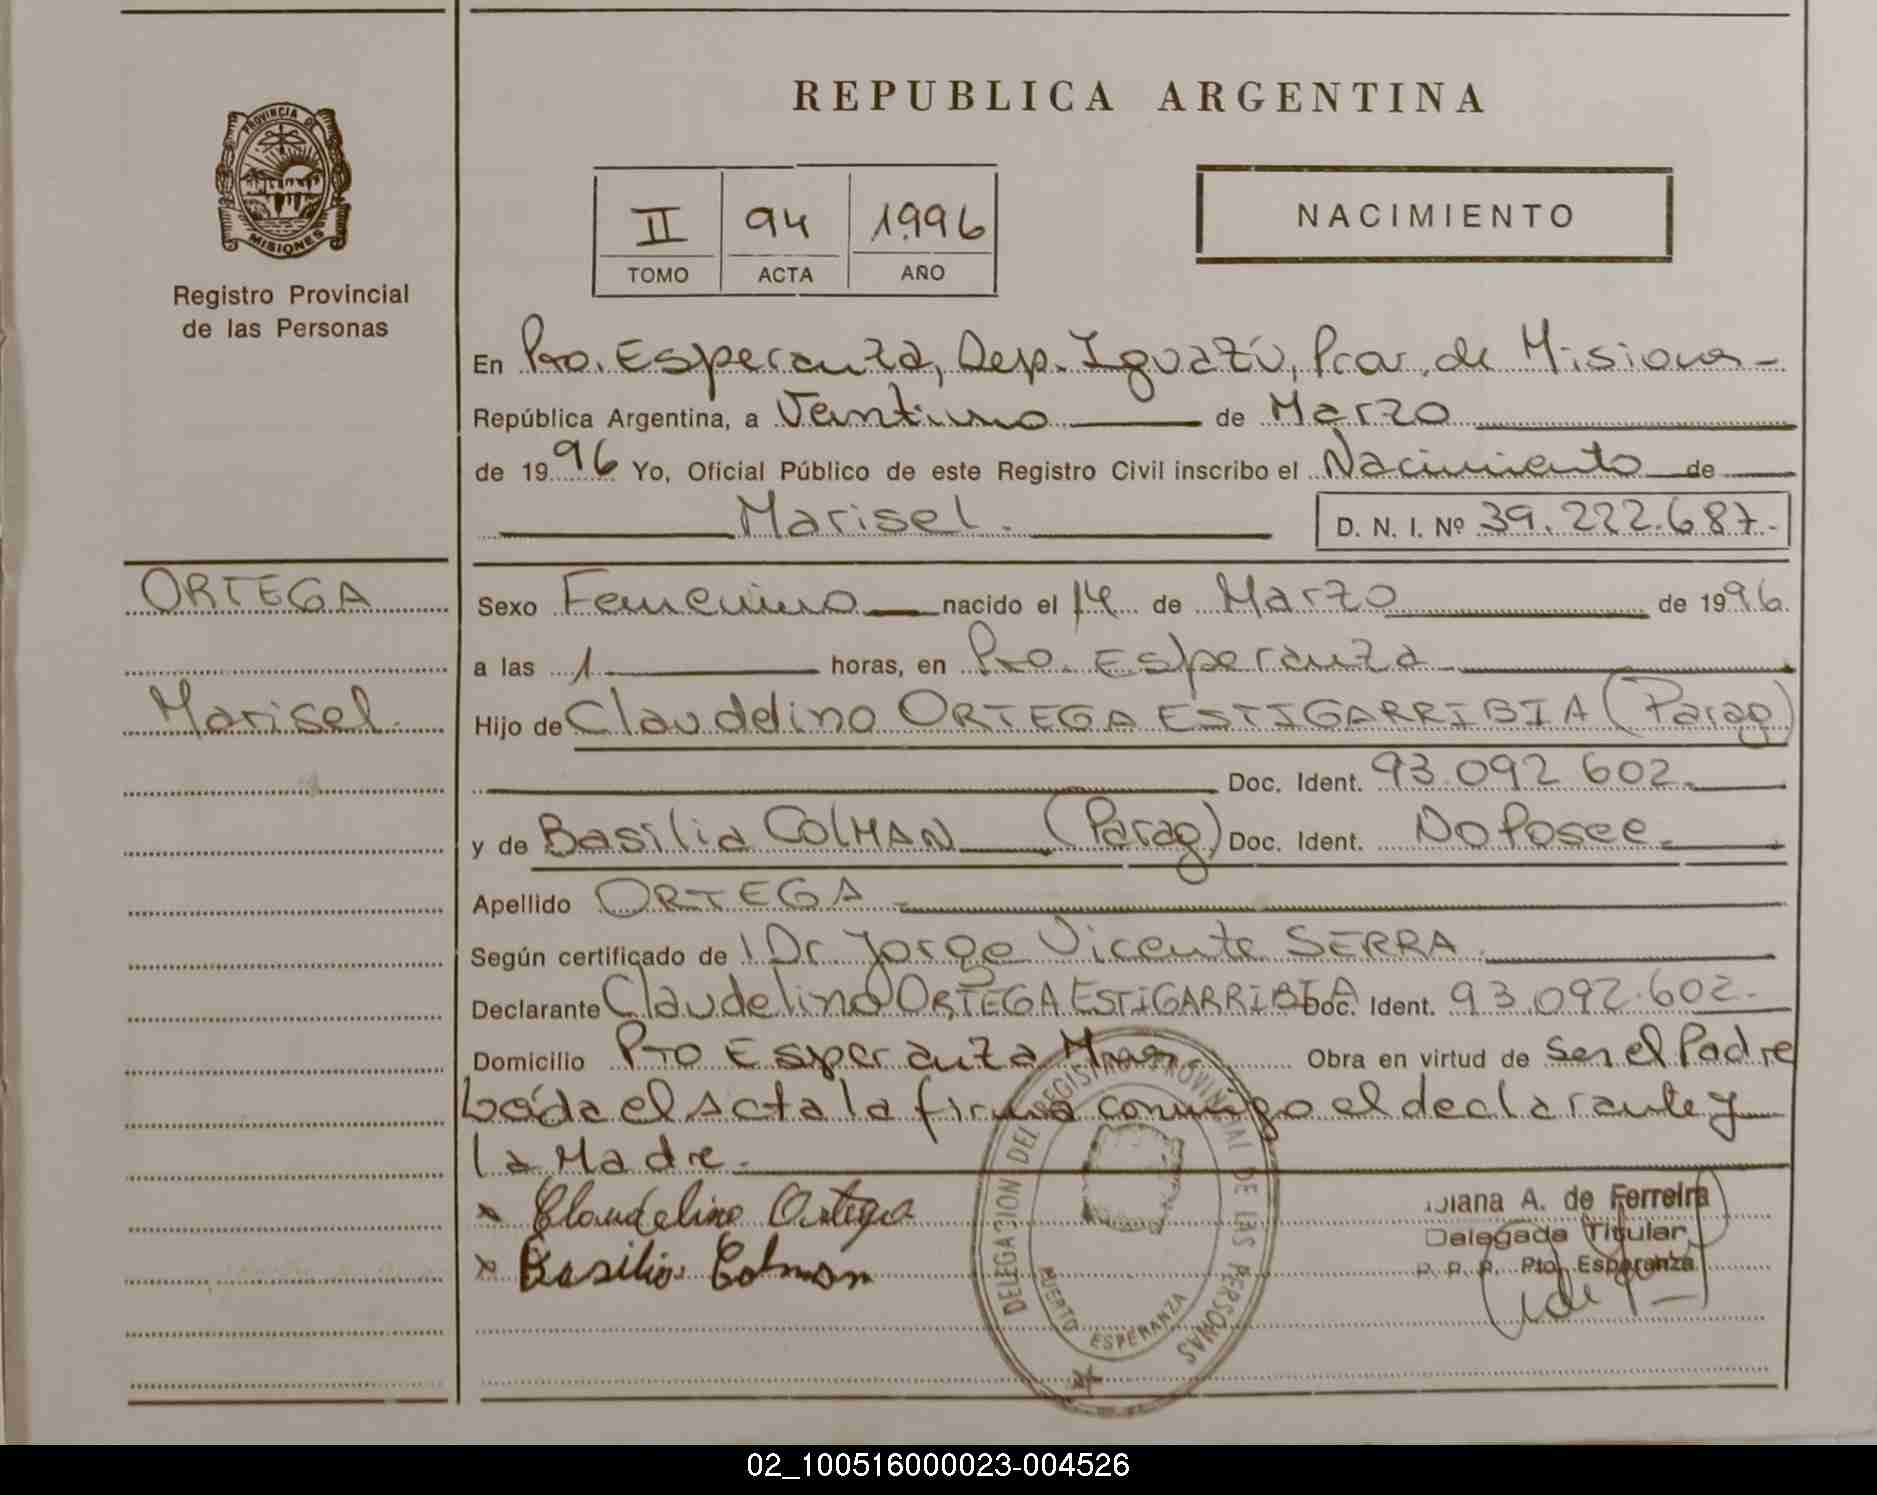 REPUBLICA ARGENTINA
PROVINCIA DE
MISIONES
Registro Provincial
de las Personas
II 94 1996
TOMO ACTA AÑO
NACIMIENTO
En Pto. Esperanza, Dep. Iguazú, Prov. de Misiones-
República Argentina, a Veintiuno de Marzo
de 1996 Yo, Oficial Público de este Registro Civil inscribo el Nacimiento de
Marisel. D. N. I. Nº 39.222.687.-
ORTEGA
Marisel.
Sexo Femenino nacido el 14 de Marzo de 1996.
a las 1 horas, en Pto. Esperanza
Hijo de Claudelino ORTEGA ESTIGARRIBIA (Parag)
Doc. Ident. 93.092.602.-
y de Basilia COLMAN (Parag) Doc. Ident. No Posee.
Apellido ORTEGA.
Según certificado de Dr Jorge Vicente SERRA.
Declarante Claudelino ORTEGA ESTIGARRIBIA Doc. Ident. 93.092.602.-
Domicilio Pto Esperanza Mnes Obra en virtud de Ser el Padre
Leída el Acta la firma conmigo el declarante y
la Madre.
x Claudelino Ortega
x Basilia Colman
DELEGACION DEL REGISTRO PROVINCIAL DE LAS PERSONAS
PUERTO ESPERANZA
Diana A. de Ferreira
Delegada Titular
R. P. P. Pto. Esperanza
02_100516000023-004526